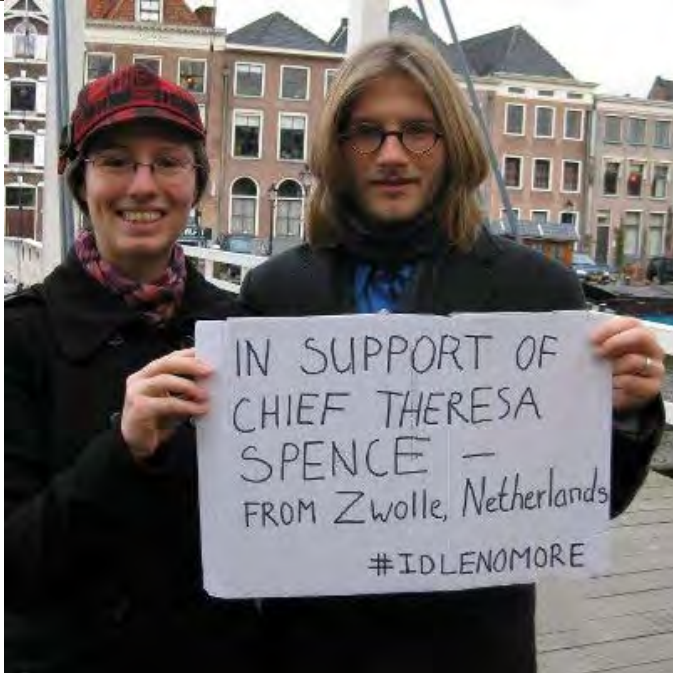 IN SUPPORT OF
CHIEF THERESA
SPENCE —
FROM Zwolle, Netherlands
#IDLENOMORE